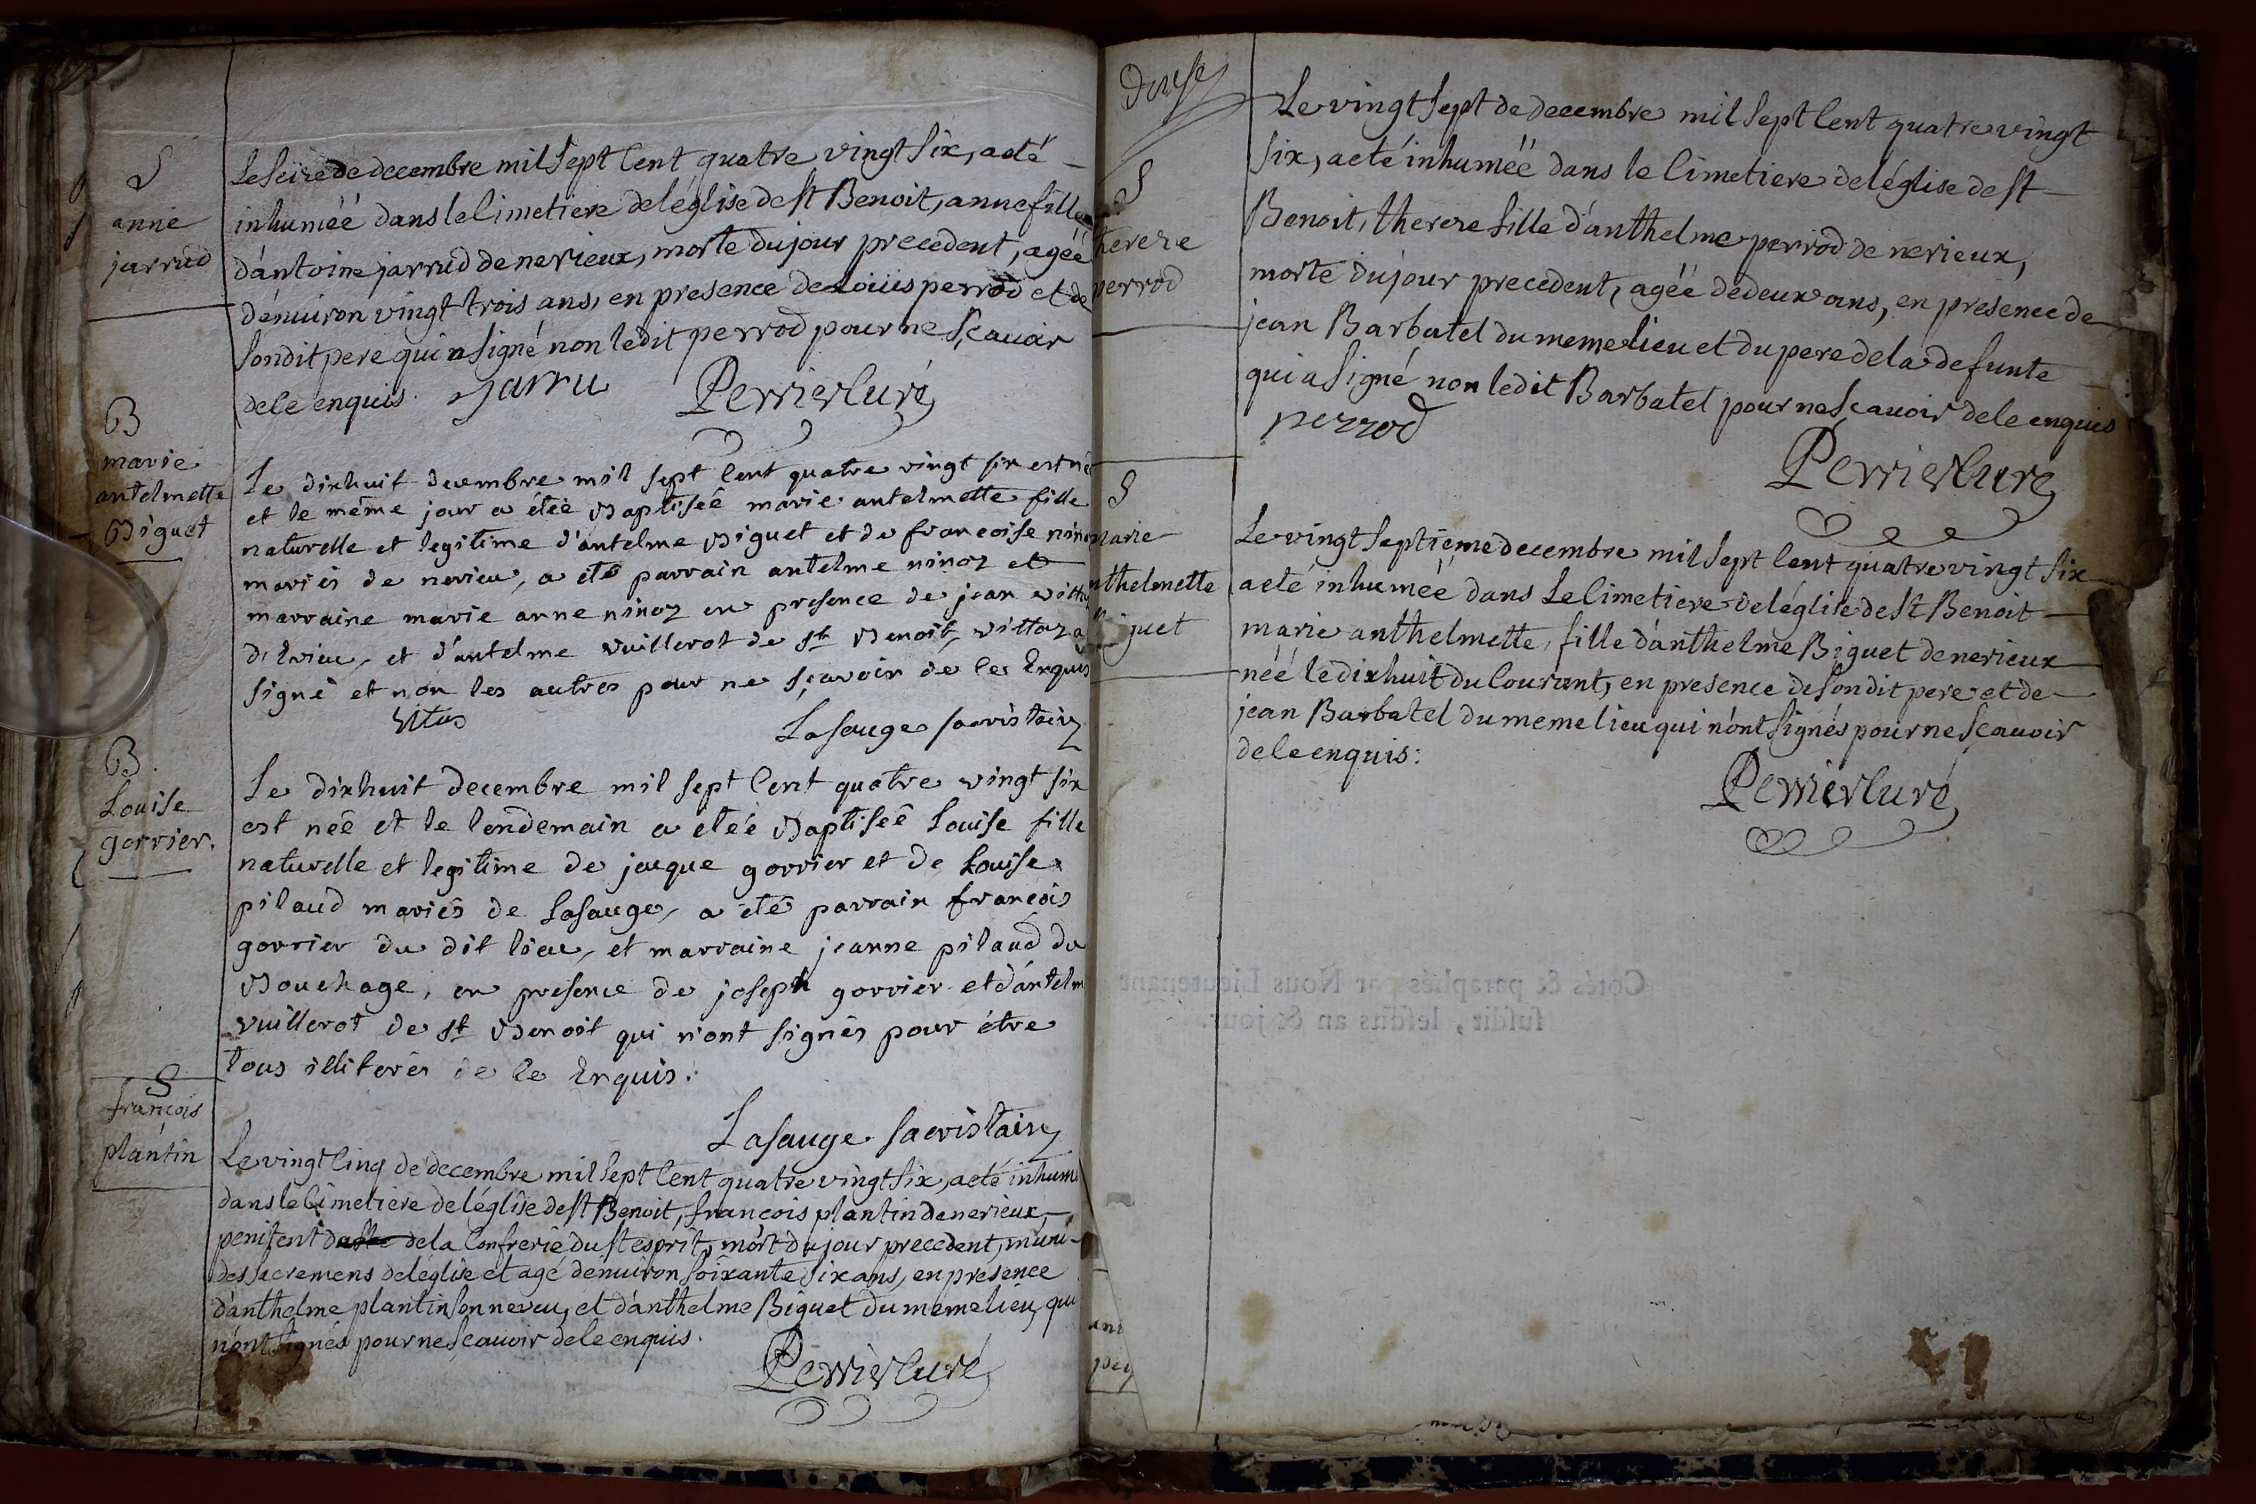 S
anne
jarrud
Le seize de decembre mil sept Cent quatre vingt six, a eté
inhuméé dans le Cimetiere de léglise de st Benoit, anne fille
d'antoine jarrud de nerieux, morte du jour precedent, agéé
d'enuiron vingt trois ans, en presence de Loüis perrod et de
son dit pere qui a signé non ledit perrod pour ne sçauoir
de le enquis. jarru Perrier Curé
B
marie
antelmette
Biguet
Le dixhuit decembre mil sept Cent quatre vingt six est né
et le même jour a étéé Baptiseé marie antelmette fille
naturelle et legitime d'antelme Biguet et de francoise nino
mariés de nerieu, a été parrain antelme ninoz et
marraine marie anne ninoz en presence de jean vitto
et d'antelme vuillerot de st Benoit, vittoz a
signé et non les autres pour ne sçavoir de le Enquis
vitos
Lasauge sacristain
B
Louise
gorrier.
Le dixhuit decembre mil sept Cent quatre vingt six
est néé et le lendemain a etéé Baptiseé Louise fille
naturelle et legitime de jacque gorrier et de Louise
pilaud mariés de Lasauge, a été parrain francois
gorrier du dit lieu, et marraine jeanne pilaud du
Bouchage, en presence de joseph gorrier et d'antelm
vuillerot de st Benoit qui n'ont signés pour étre
tous illiterés de le Enquis.
Lasauge sacristain
S
françois
plantin
Le vingt Cinq de decembre mil sept Cent quatre vingt six, a eté inhumé
dans le Cimetiere de léglise de st Benoit, francois plantin de nerieux,
penitent de la Confrerie du st esprit, mort du jour precedent, muni
des sacremens de léglise et agé d'enuiron soixante six ans, en presence
d'anthelme plantin son neveu, et d'anthelme Biguet du meme lieu, qui
n'ont signés pour ne sçauoir de le enquis.
Perrier Curé
Douze
S
thereze
perrod
Le vingt sept de decembre mil sept Cent quatre vingt
six, a eté inhuméé dans le Cimetiere de léglise de st
Benoit, thereze fille d'anthelme perrod de nerieux,
morte du jour precedent, agéé de deux ans, en presence de
jean Barbatel du meme lieu et du pere de la defunte
qui a signé non ledit Barbatel pour ne sçauoir de le enquis
perrod
Perrier Curé
S
marie
anthelmette
Biguet
Le vingt septième decembre mil sept Cent quatre vingt six
a eté inhuméé dans Le Cimetiere de léglise de st Benoit
marie anthelmette, fille d'anthelme Biguet de nerieux
néé le dixhuit du Courant, en presence de son dit pere et de
jean Barbatel du meme lieu qui n'ont signés pour ne sçauoir
de le enquis:
Perrier Curé
Cotés & paraphés par Nous Lieutenant
susdit, lesdits an & jour.